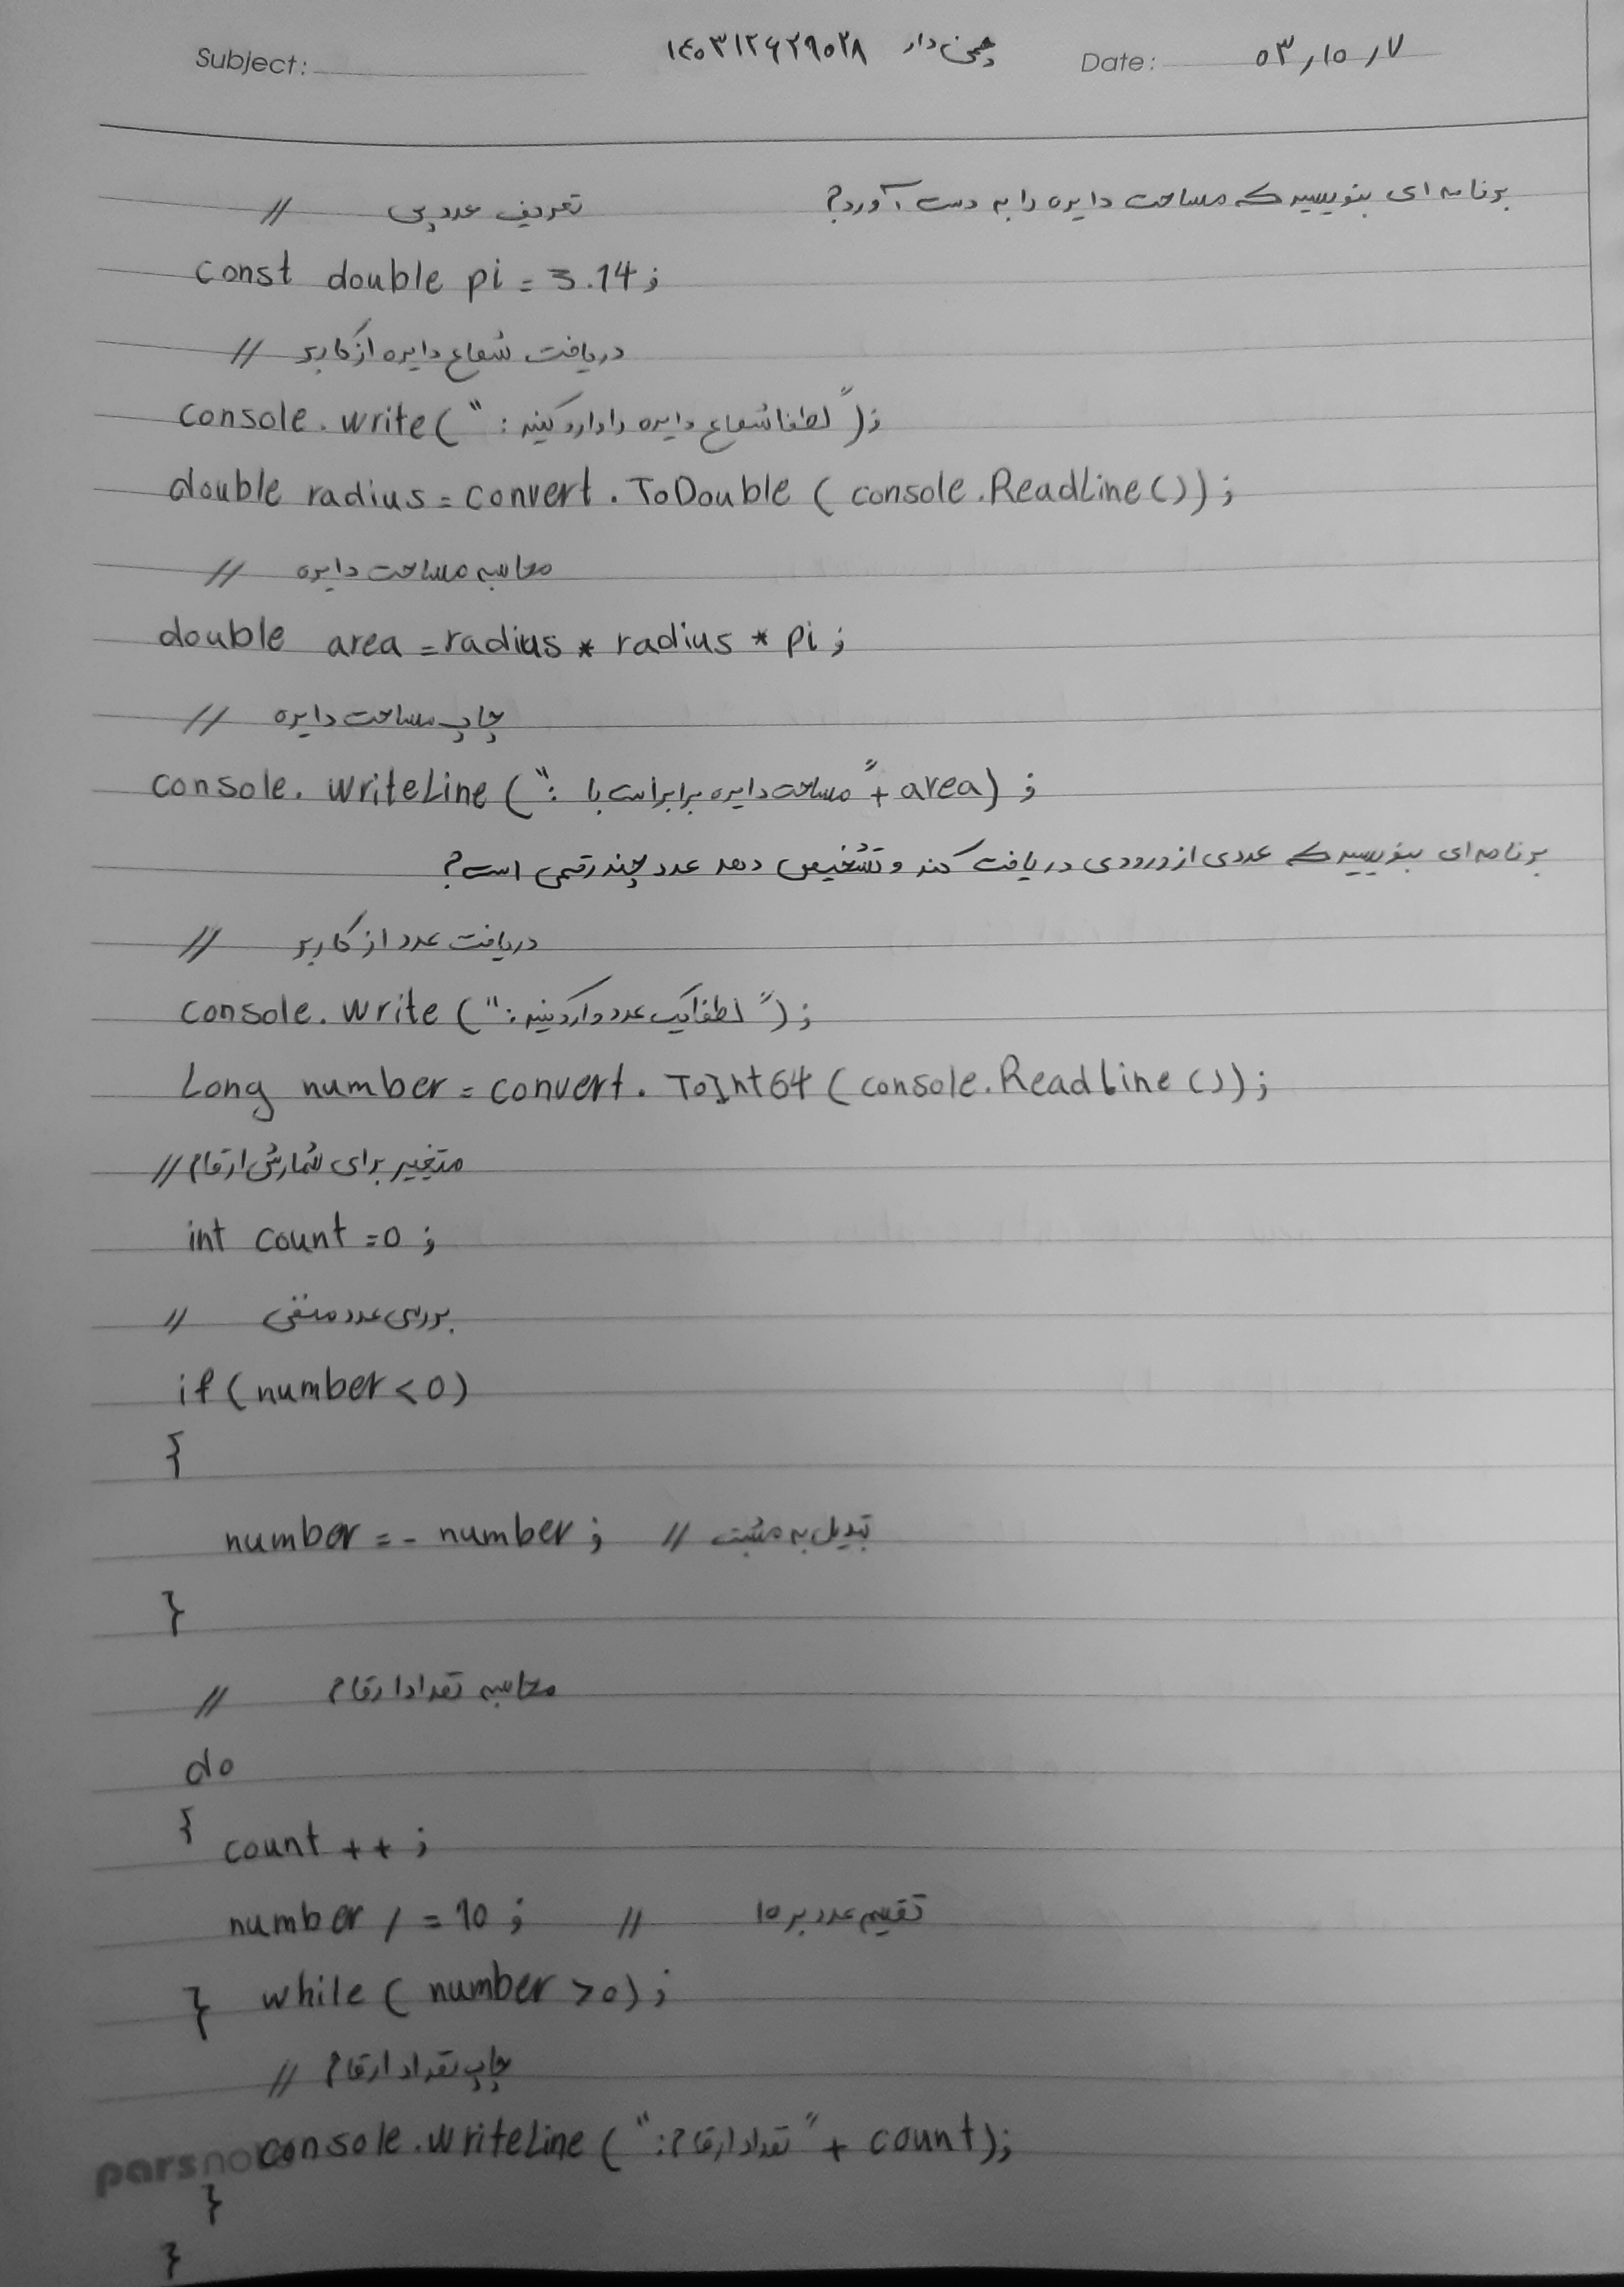 Subject: چمن دار ۱۴۰۳۱۲۶۲۹۰۲۸ Date: ۰۳٫۱۰٫۱۷
برنامه ای بنویسید که مساحت دایره را به دست آورد؟
// تعریف عدد پی
const double pi = 3.14;
// دریافت شعاع دایره از کاربر
console.write("لطفا شعاع دایره را وارد کنید:");
double radius = convert.ToDouble (console.ReadLine());
// محاسبه مساحت دایره
double area = radius * radius * pi;
// چاپ مساحت دایره
console.writeLine("مساحت دایره برابر است با :" + area);
برنامه ای بنویسید که عددی از ورودی دریافت کند و تشخیص دهد عدد چند رقمی است؟
// دریافت عدد از کاربر
console.write ("لطفا یک عدد وارد کنید:");
Long number = convert.ToInt64 (console.ReadLine());
// متغییر برای شمارش ارقام
int count = 0;
// بررسی عدد منفی
if (number < 0)
{
number = - number; // تبدیل به مثبت
}
// محاسبه تعداد ارقام
do
{ count ++;
number / = 10; // تقسیم عدد بر ۱۰
} while (number > 0);
// چاپ تعداد ارقام
console.writeLine ("تعداد ارقام:" + count);
parsnote
}
}